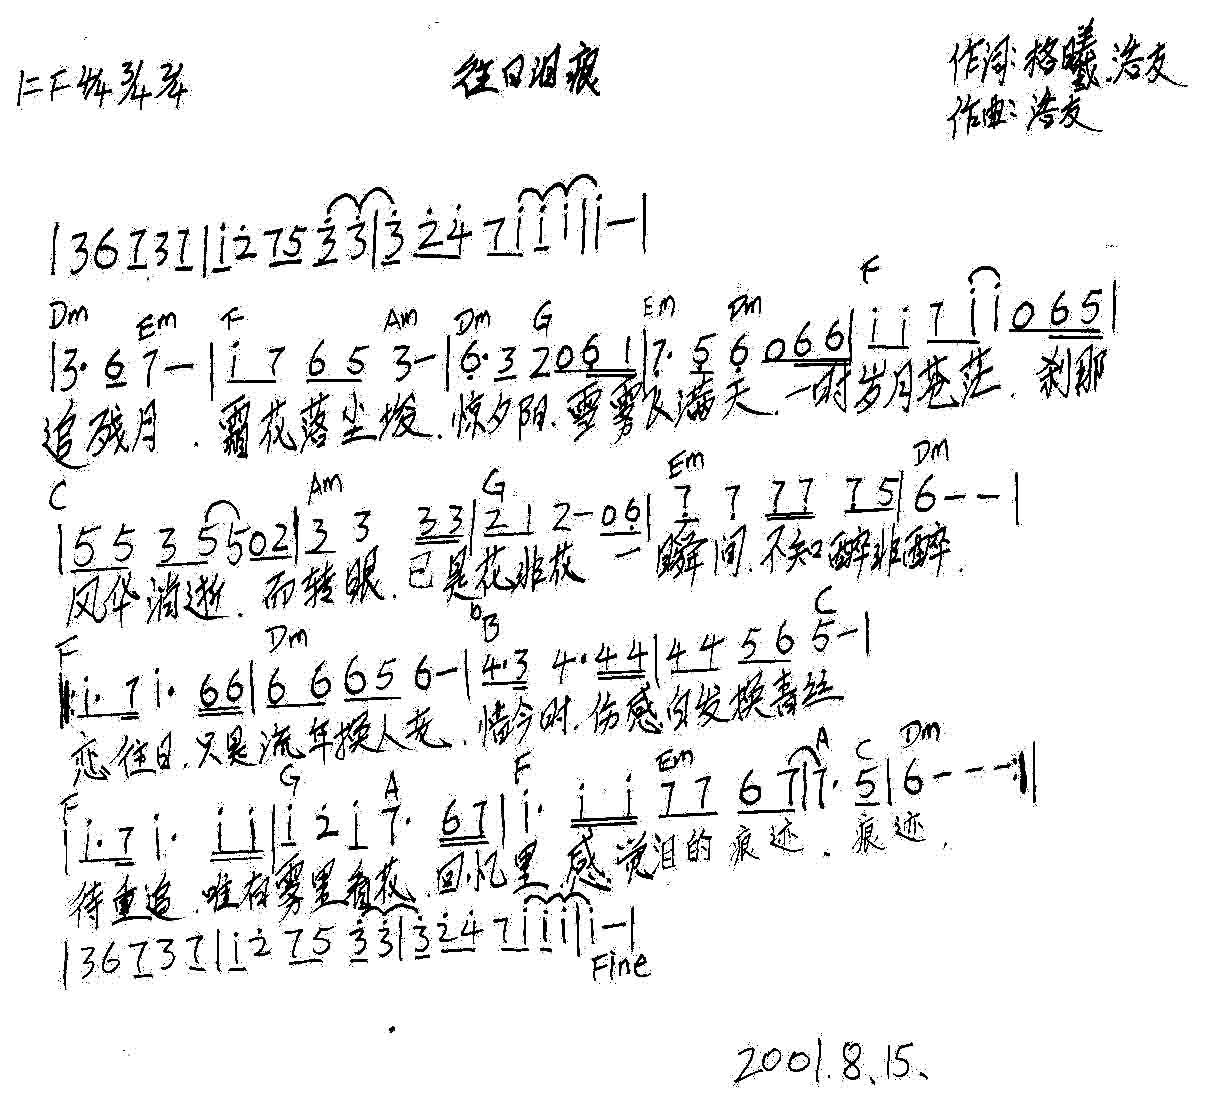 往日泪痕
1=F 4/4 3/4 2/4
作词:格曦.浩友
作曲:浩友
|36737|i27533|324 7iii|i-|
Dm Em F Am Dm G Em Dm F
|3·67-|i765 3-|6·3 2061|7·56 066|ii7ii 065|
追残月.霜花落尘埃.惊夕阳.雪雾及满天.一时岁月苍茫.刹那
C Am G Em Dm
|55 35502|33 33|21 2-06|77 77 75|6--|
风华消逝.而转眼.已是花非花 一瞬间.不知醉非醉.
F Dm bB C
‖:i·7i· 66|66 65 6-|4·3 4·44|44 56 5-|
恋往日.只是流年换人老.惜今时.伤感白发换青丝
F G A F Em A C Dm
|i·7i· ii|i2i7· 67|i· ii 77 67|7· 5|6---:‖
待重追.唯有雾里看花.回忆里.感觉泪的痕迹.痕迹.
|36737|i2 75 33|324 7iii|i-|
Fine
2001.8.15.